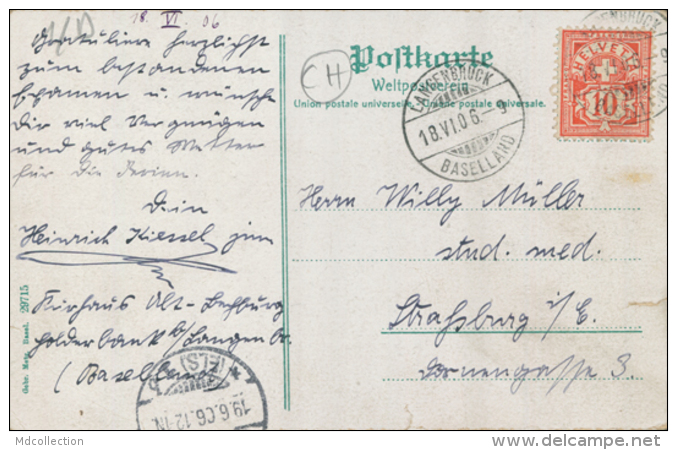 18. VI. 06
Gratuliere herzlichst
zum bestandenen
Examen u. wünsche
Dir viel Vergnügen
und gutes Wetter
für die Ferien.
Dein
Heinrich Kiessel jun
Kurhaus Alt-Bechburg
Holderbank b/Langenbr.
(Baselland)
Gebr. Metz, Basel. 29715
CH
Postkarte
Weltpostverein
Union postale universelle. Unione postale universale.
LANGENBRUCK
18.VI.06. 9
BASELLAND
HELVETIA
10
Herrn Willy Müller
stud. med.
Straßburg i/E.
Dornengasse 3.
(ELS)
19.6.06.12-1N.
Mdcollection
delcampe.net